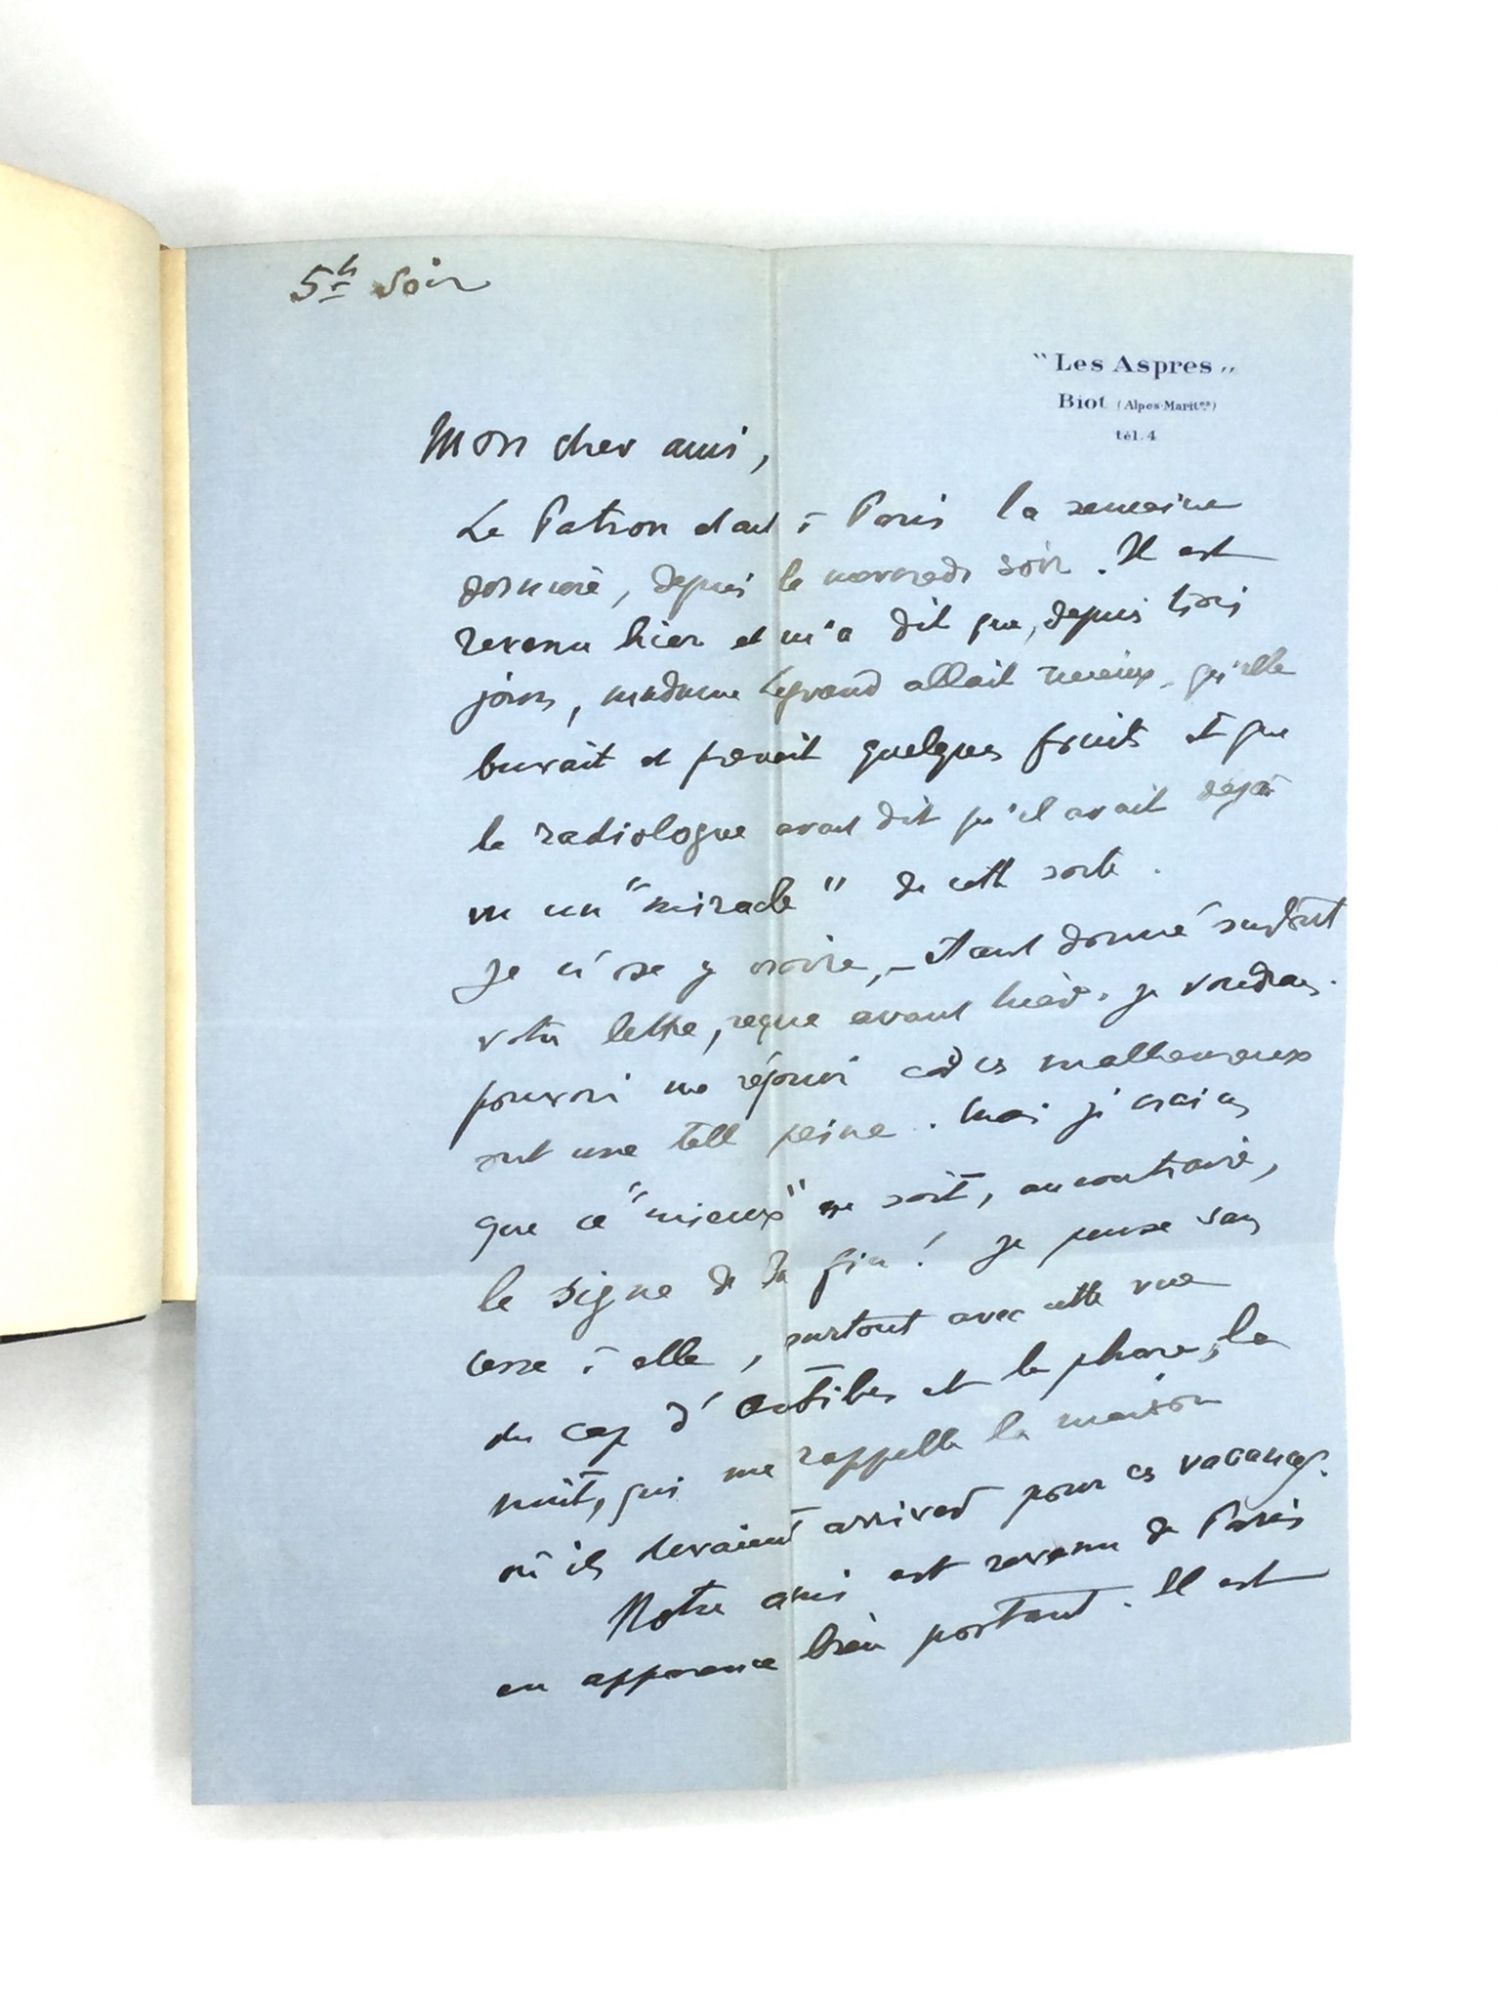 5h soir
"Les Aspres"
Biot (Alpes-Marites)
tél. 4
Mon cher ami,
Le Patron était à Paris la semaine
dernière, depuis le mercredi soir. Il est
revenu hier et m'a dit que, depuis trois
jours, madame Legrand allait mieux, qu'elle
buvait et prenait quelques fruits et que
le radiologue avait dit qu'il avait déjà
vu un "miracle" de cette sorte.
Je n'ose y croire, – étant donné surtout
votre lettre, reçue avant hier. Je voudrais
pouvoir me réjouir car ces malheureux
ont une telle peine. Mais je crains
que ce "mieux" ne soit, au contraire,
le signe de la fin ! Je pense sans
cesse à elle, surtout avec cette vue
du cap d'Antibes et le phare, la
nuit, qui me rappelle la maison
où ils devaient arriver pour ces vacances.
Notre ami est revenu de Paris
en apparence bien portant. Il est